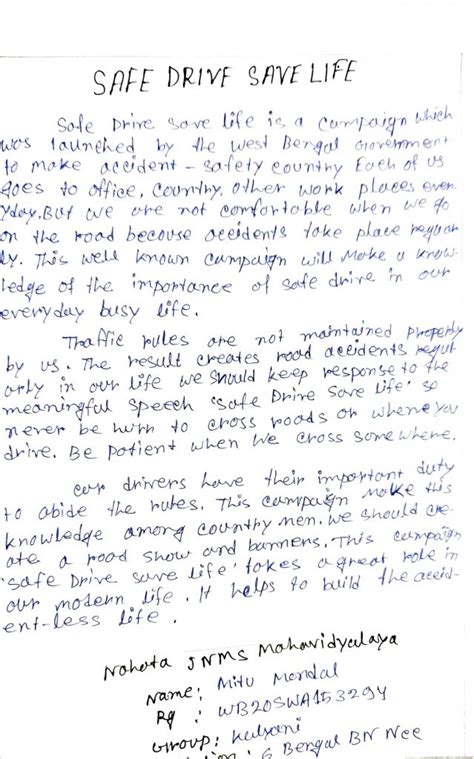 SAFE DRIVE SAVE LIFE
Safe Drive save life is a campaign which
was launched by the west Bengal Government
to make accident - safety country Each of us
goes to office, country, other work places ever
yday. But we are not comfortable when we go
on the road becouse accidents take place regular
ly. This well known campaign will make a know-
ledge of the importance of safe drive in our
everyday busy life.
Traffic rules are not maintained properly
by us. The result creates road accidents regul
arly in our life we should keep response to the
meaningful speech 'Safe Drive Save life' so
never be hurry to cross roads or where you
drive. Be patient when we cross somewhere.
car drivers have their important duty
to abide the rules. This campaign make this
knowledge among country men. we should cre-
ate a road show and banners. This campaign
'Safe Drive save life' takes a great role in
our modern life. It helps to build the accid-
ent-less life.
Nahata JNMS Mahavidyalaya
Name: Mitu Mondal
: WB20SWA153294
Group: Kalyani
: 6 Bengal BN Ncc